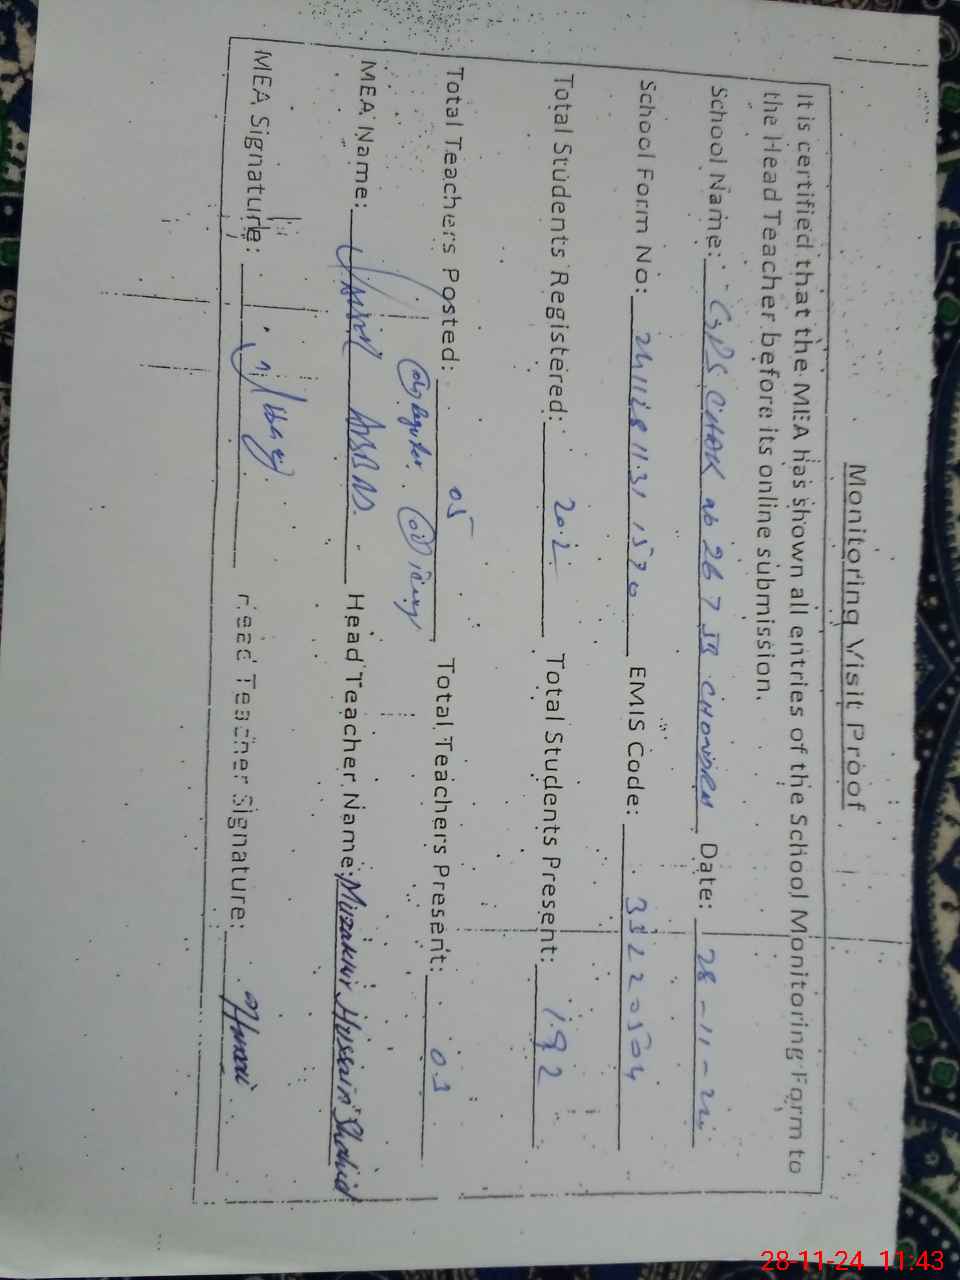 Monitoring Visit Proof
It is certified that the MEA has shown all entries of the School Monitoring Form to
the Head Teacher before its online submission.
School Name: GPS CHAK no 267 JB Date: 28-11-24
School Form No: EMIS Code: 33220504
Total Students Registered: 202 Total Students Present: 192
Total Teachers Posted: 05 Total Teachers Present:
MEA Name: ABBAS. Head Teacher Name: Hussain Shahid
MEA Signature: Head Teacher Signature:
28-11-24 11:43